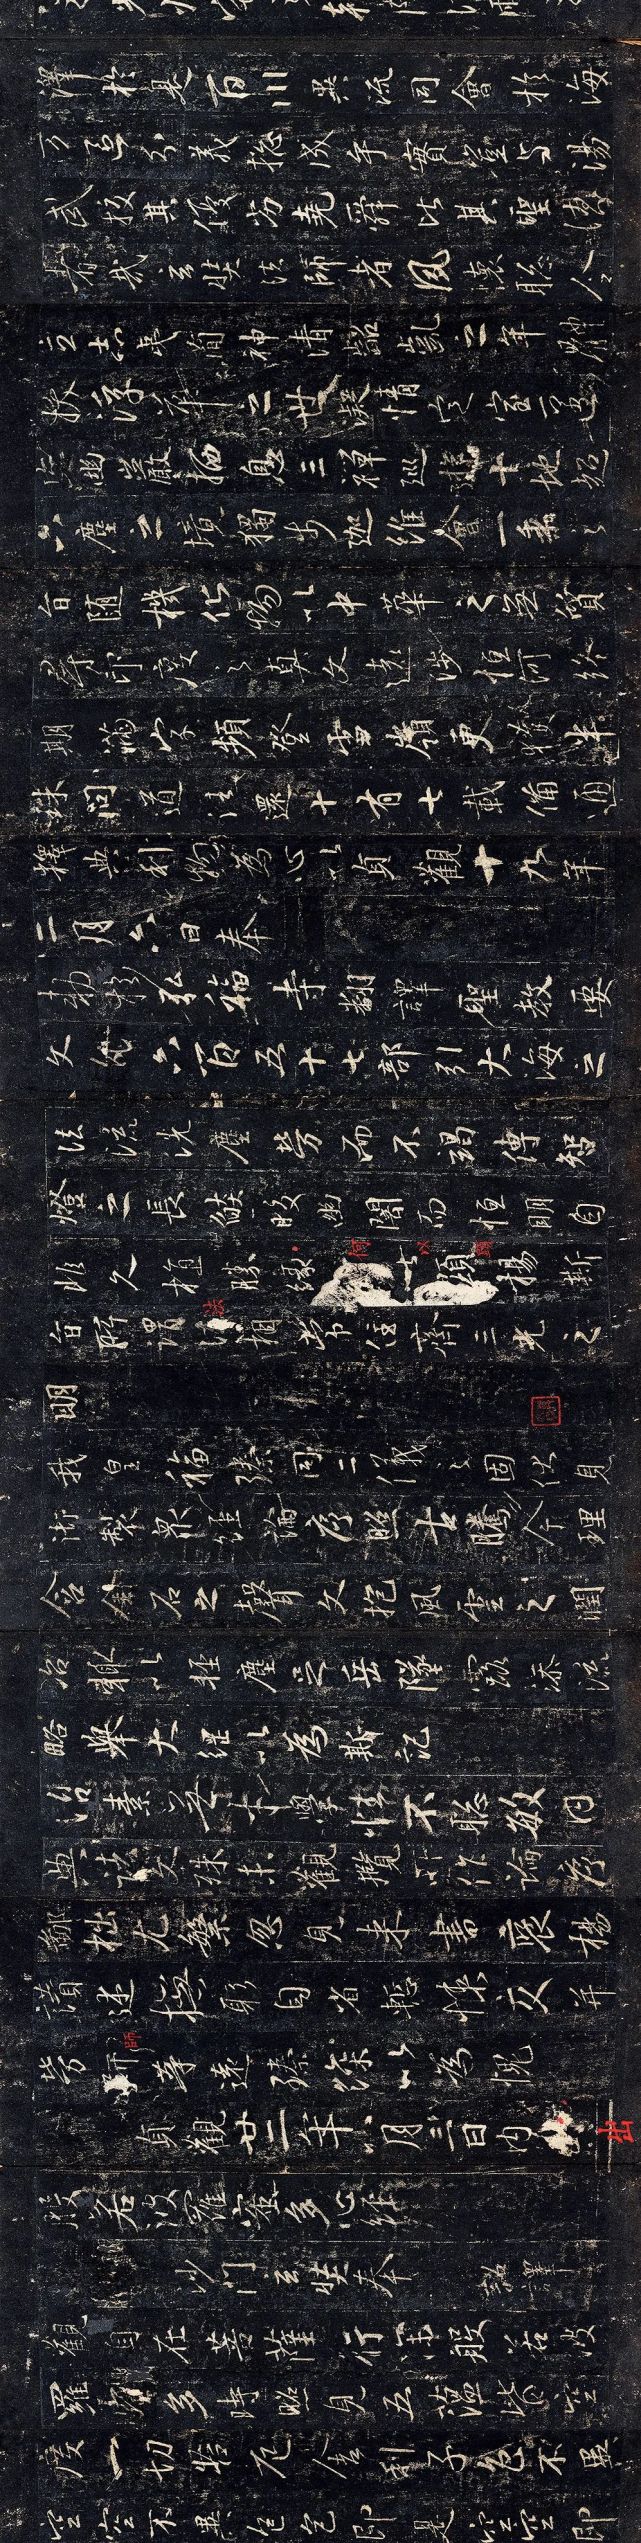 澤於是百川異流同會於海
万區分義総成乎實豈与湯
武挍其優劣堯舜比其聖德
者哉玄奘法師者夙懷聡令
立志夷簡神清齠齔之年體
拔浮華之世凝情定室匿
迹幽巖栖息三禪巡遊十地超
六塵之境獨步迦維會一乘之
旨随機化物以中華之無質
尋印度之真文遠涉恒河終
期滿字頻登雪嶺更獲半
珠問道法還十有七載備通
釋典利物為心以貞觀十九年
二月六日奉
勅於弘福寺翻譯聖教要
文凡六百五十七部引大海之
法流洗塵勞而不竭傳智
燈之長焰皎幽闇而恒明自
非久植勝緣何以顯揚斯
旨所謂法相常住齊三光之
明
我皇福臻同二儀之固伏見
御製衆経論序照古騰今理
含金石之聲文抱風雲之潤
治輒以輕塵足岳墜露添流
略舉大綱以為斯記
治素無才學性不聡敏内
典諸文殊未觀攬所作論序
鄙拙尤繁忽見来書褒揚
讃述撫躬自省慙悚交并
勞師等遠臻深以為愧
貞觀廿二年八月三日内出
般若波羅蜜多心経
沙門玄奘奉 詔譯
觀自在菩薩行深般若波
羅蜜多時照見五蘊皆空
度一切苦厄舍利子色不異
空空不異色色即是空空即